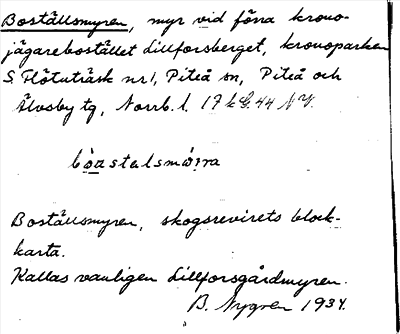 Boställsmyren, myr vid föra krono-
jägarebostället Lillforsberget, kronoparken
S. Flötuträsk nr 1, Piteå sn, Piteå och
Älvsby tg, Norrb. l. 17 k G. 44 N.Y.
bòastalsmò̤rra
Boställsmyren, skogsrevirets block-
karta.
Kallas vanligen Lillforsgårdmyren.
B. Nygren 1934.